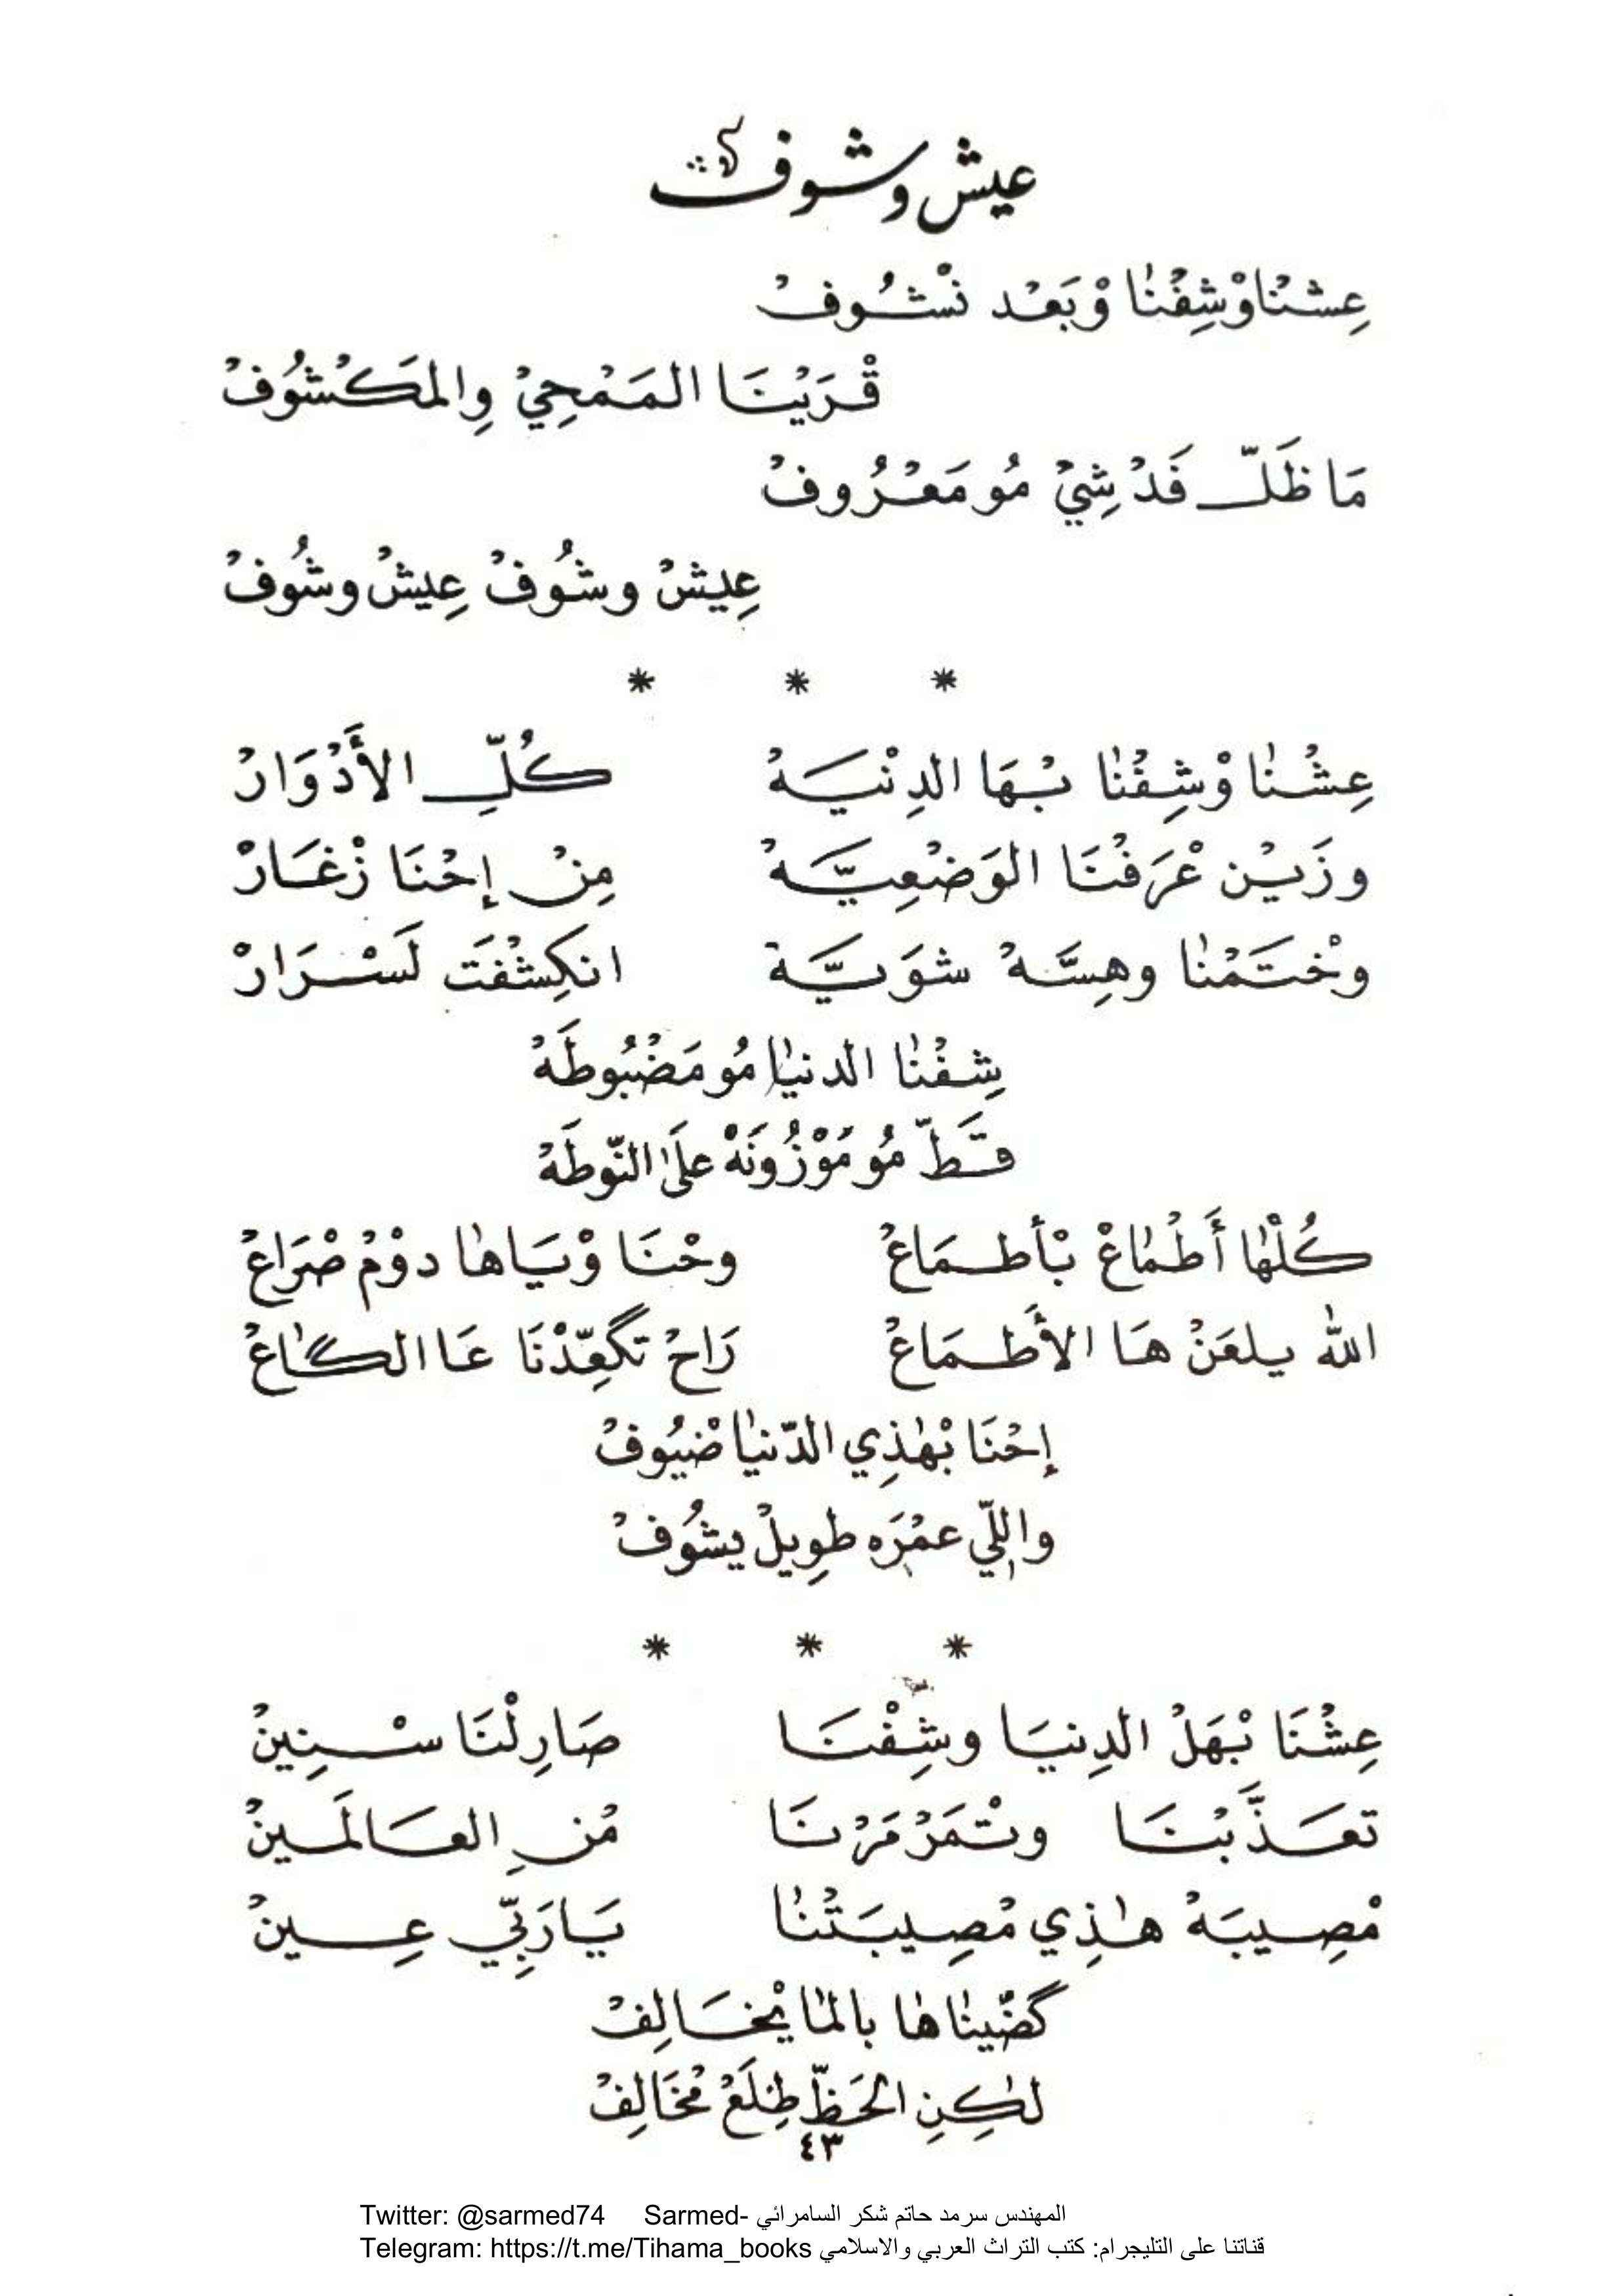 عيش وشوف
عِشْنَا وْشِفْنٰا وْبَعْد نْشُوفْ
قْرَيْنَا المَمْحِيْ وِالمَكْشُوفْ
مَا ظَلّ فَدْ شِيْ مُو مَعْرُوفْ
عِيشْ وشُوفْ عِيشْ وشُوفْ
* * *
عِشْنٰا وْشِفْنٰا بْهَا الدِنْيَهْ كُلِّ الأَدْوَارْ
وزَيْن عْرَفْنَا الوَضْعِيَّهْ مِنْ إحْنَا زْغَارْ
وخْتَمْنٰا وهِسَّهْ شوَيَّة انكِشْفَت لَسْرَارْ
شِفْنٰا الدنيٰا مُو مَضْبُوطَهْ
قَطّ مُو مَوْزُونَهْ علَىٰ النّوطَهْ
كُلْهٰا أَطْمٰاعْ بْأطمَاعْ وحْنَا وْيَاهٰا دوْمْ صْرَاعْ
الله يلعَنْ هَا الأَطمَاعْ رَاحْ تگعِّدْنَا عَا الگٰاعْ
إحْنَا بْهٰذِي الدّنيٰا ضْيُوفْ
واللّي عمْرَه طوِيلْ يشُوفْ
* * *
عِشْنَا بْهَلْ الدِنيَا وشِفْنَا صَارِلْنَا سْنِينْ
تعَذَّبْنَا وتْمَرْمَرْنَا مْنِ العَالَمينْ
مْصِيبَهْ هٰذِي مْصِيبَتْنٰا يَارَبّي عِينْ
گضّينٰاهٰا بالمٰا يْخَالِفْ
لٰكِنِ الحَظّ طِلَعْ مْخَالِفْ
٤٣
Twitter: @sarmed74 Sarmed- المهندس سرمد حاتم شكر السامرائي
Telegram: https://t.me/Tihama_books قناتنا على التليجرام: كتب التراث العربي والاسلامي